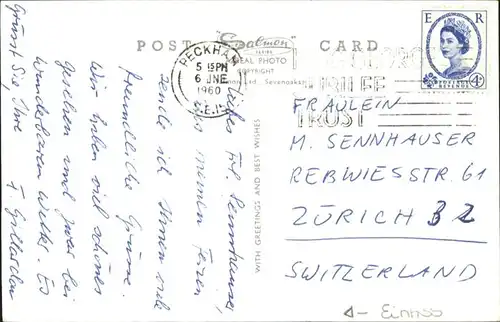 POST CARD
Salmon
SERIES
REAL PHOTO
COPYRIGHT
Sevenoaks
PECKHAM
5 15 PM
6 JNE
1960
S.E.15
JUBILEE
TRUST
E R
4D
WITH GREETINGS AND BEST WISHES
Liebes Frl. Sennhauser,
aus meinen Ferien
sende ich Ihnen viele
freundliche Grüsse.
Wir haben viel schönes
gesehen und zwar bei
wunderbarem Wetter. Es
grüsst Sie Ihre
FRÄULEIN
M. SENNHAUSER
REBWIESSTR. 61
ZÜRICH 32
SWITZERLAND